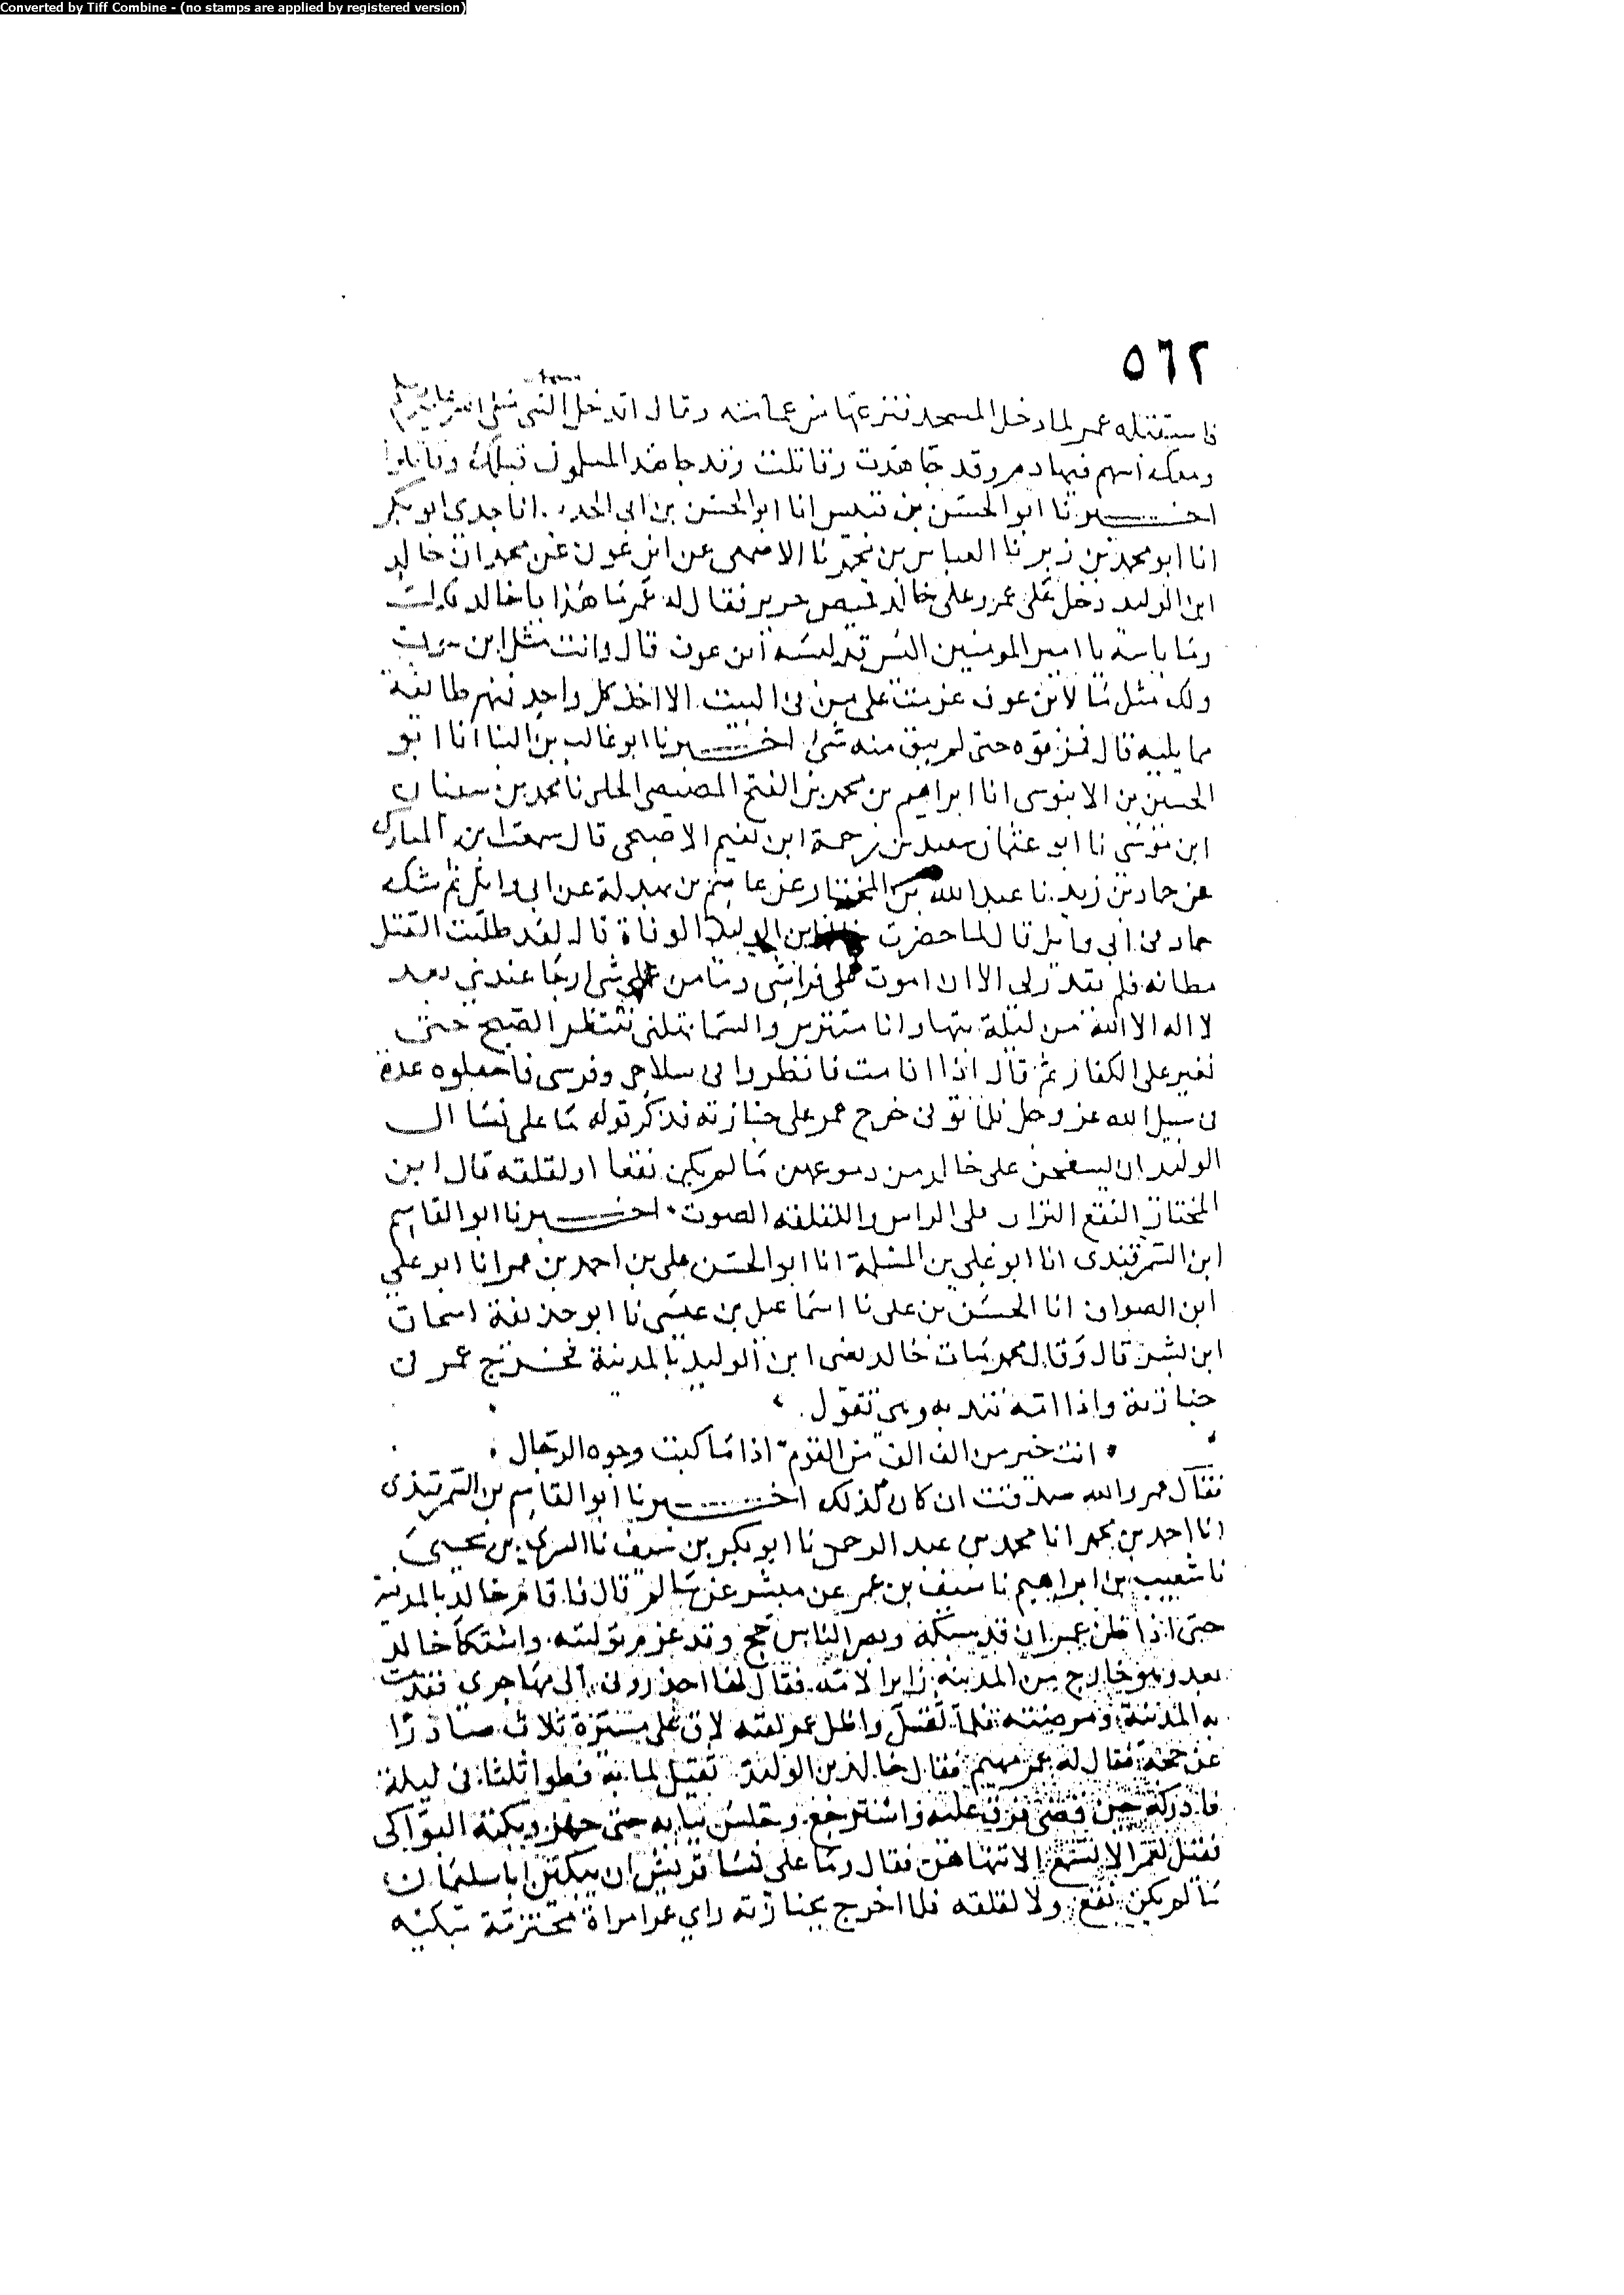 Converted by Tiff Combine - (no stamps are applied by registered version)
٥٦٢
فاستقبله عمر لما دخل المسجد فنزعها من عمامته وقال اتدخل النبي صلى الله عليه وسلم
ومعك اسهم فيها دم وقد جاهدت وقاتلت وقد جاهد المسلمون قبلك وقاتلوا
اخبرنا ابو الحسن بن قبيس انا ابو الحسن بن ابي الحديد انا جدي ابو بكر
انا ابو محمد بن زبر نا العباس بن محمد نا الاصمعي عن ابن عون عن محمد ان خالد
ابن الوليد دخل على عمر وعلى خالد قميص حرير فقال له عمر ما هذا يا خالد قال
وما باسه يا امير المومنين اليس قد لبسه ابن عوف قال وانت مثل ابن عوف
ولك مثل ما لابن عوف عزمت على من في البيت الا اخذ كل واحد منهم طائفة
مما يليه قال فمزقوه حتى لم يبق منه شئ اخبرنا ابو غالب بن البنا انا ابو
الحسين بن الابنوسي انا ابراهيم بن محمد بن الفتح المصيصي الجلي نا محمد بن سفيان
ابن موسى نا ابو عثمان سعيد بن رحمة ابن نعيم الاصبحي قال سمعت ابن المبارك
عن حماد بن زيد نا عبد الله بن المختار عن عاصم بن بهدلة عن ابي وائل ثم شك
حماد في ابي وايل قال لما حضرت خالد ابن الوليد الوفاة قال لقد طلبت القتل
مظانه فلم يقدر لي الا ان اموت على فراشي وما من عملي شي ارجا عندي بعد
لا اله الا الله من ليلة بتها وانا متترس والسما تهلني ننتظر الصبح حتى
نغير على الكفار ثم قال اذا انا مت فانظروا في سلاحي وفرسي فاجعلوه عدة
في سبيل الله عز وجل فلما توفي خرج عمر على جنازته فذكر قوله ما على نسا ال
الوليد ان يسفحن على خالد من دموعهن ما لم يكن نقعا او لقلقه قال ابن
المختار النقع التراب على الراس واللقلقه الصوت اخبرنا ابو القاسم
ابن السمرقندي انا ابو علي بن المسلمة انا ابو الحسن علي بن احمد بن عمر انا ابو علي
ابن الصواف انا الحسن بن علي نا اسماعيل بن عيسى نا ابو حذيفة اسحاق
ابن بشر قال وقال محمد مات خالد يعني ابن الوليد بالمدينة فخرج عمر في
جنازته واذا امه تندبه وهي تقول
انت خير من الف الف من القوم اذا ما كبت وجوه الرجال
فقال عمر والله صدقت ان كان لكذلك اخبرنا ابو القاسم بن السمرقندي
انا احمد بن محمد انا محمد بن عبد الرحمن نا ابو بكر بن سيف نا السري بن يحيى
نا شعيب بن ابراهيم نا سيف بن عمر عن مبشر عن سالم قال فاقام خالد بالمدينة
حتى اذا ظن عمر ان قد سبكه وبصر الناس حج وقد عزم توليته واشتكا خالد
بعد وهو خارج من المدينة زايرا لامه فقال لها احدروني الى مهاجري فقدمت
به المدينة ومرضته فلما ثقل واظل عمر لقيه لاق على مسيرة ثلاث صادرا
عن حجه فقال له عمر مهيم فقال خالد بن الوليد ثقيل لما به فطوا ثلثا في ليلة
فادركه حين قضى فرق عليه واسترجع وجلس ببابه حتى جهز وبكته البواكي
فقيل لعمر الا تسمع الا تنهاهن فقال وما على نسا قريش ان يبكين ابا سليمان
ما لم يكن نقع ولا لقلقه فلما اخرج بجنازته راي عمر امراة محتزمة تبكيه